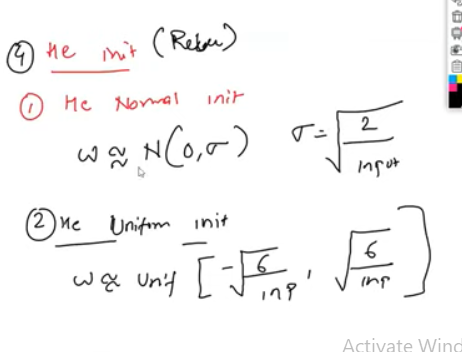 ④ He init (Relu)
① He Normal init
w ≈ N(0,σ) σ = √(2/input)
② He Uniform init
w ≈ Unif [-√(6/inp), √(6/inp)]
Activate Wind